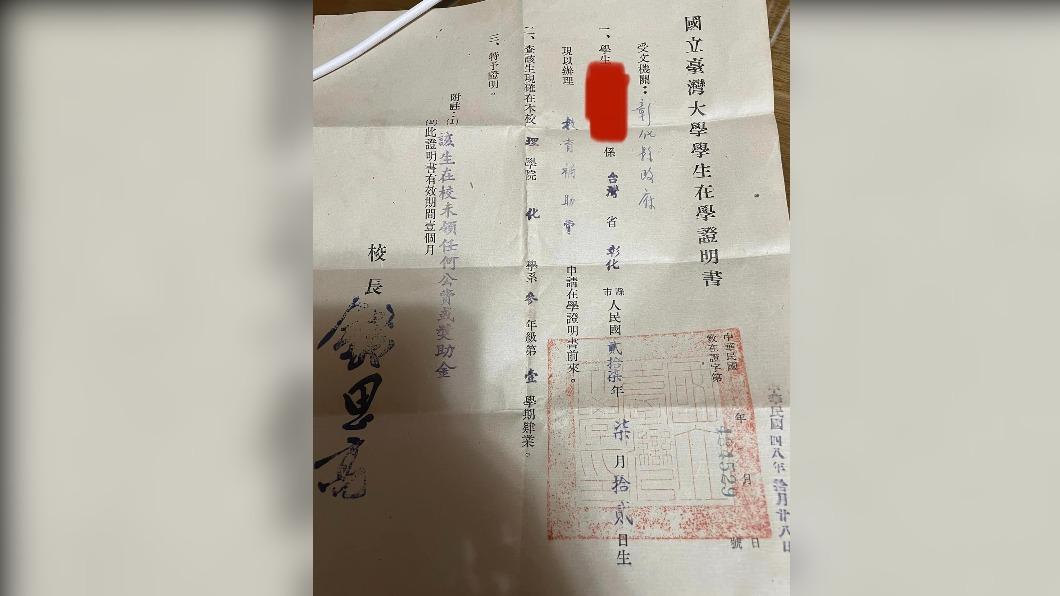 國立臺灣大學學生在學證明書
受文機關：彰化縣政府
一、學生 係 台灣 省 彰化 縣市 人民國 貳拾柒 年 柒 月 拾貳 日生
現以辦理 教育補助費 申請在學證明書前來。
二、查該生現確在本校 理 學院 化 學系 參 年級第 壹 學期肄業。
三、特予證明。
附註：(1)該生在校未領任何公費或獎助金
(2)此證明書有效期間壹個月
校長 錢思亮
中華民國 年 月 日
教在證字第 號
中華民國四八年拾月廿八日